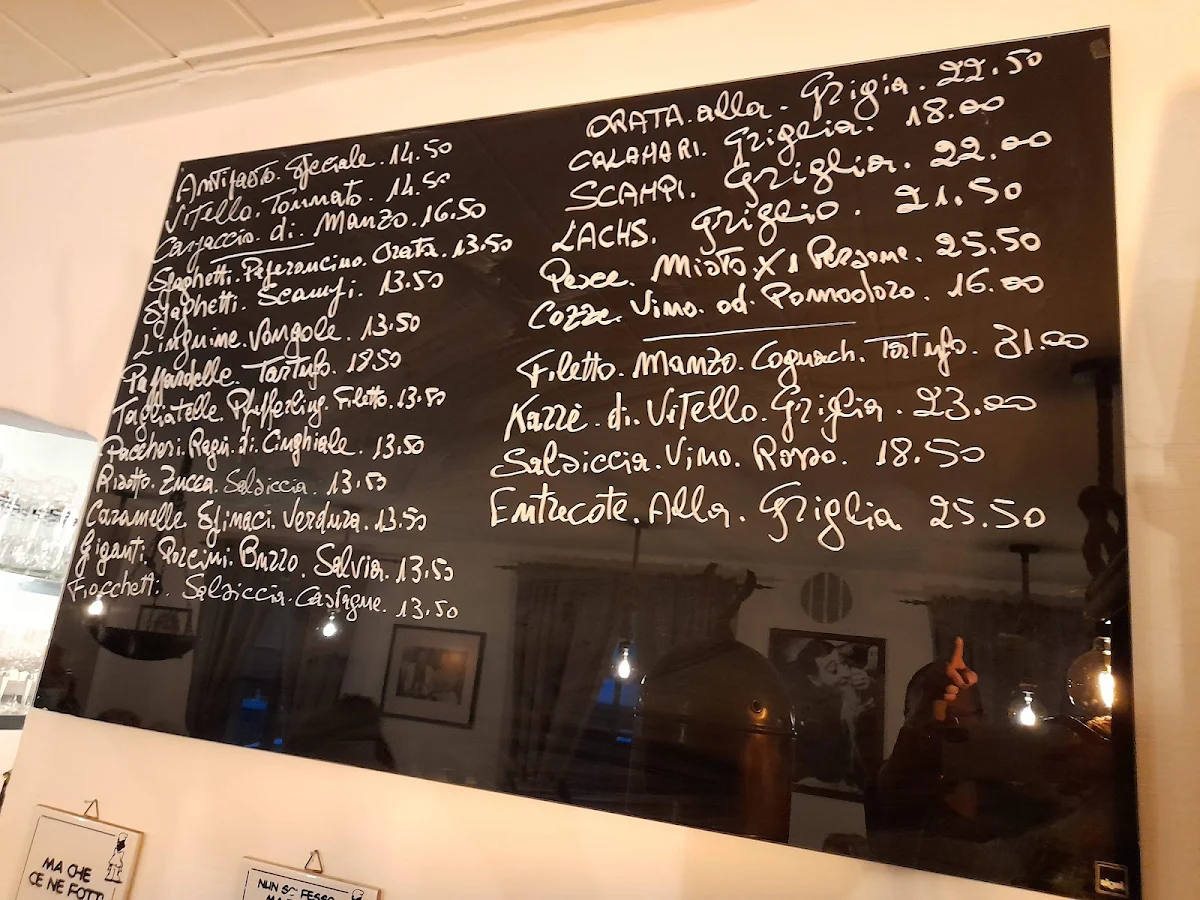 Antipasto. Speciale. 14.50
Vitello. Tonnato. 14.50
Carpaccio. di. Manzo. 16.50
Spaghetti. Peperoncino. Orata. 13.50
Spaghetti. Scampi. 13.50
Linguine. Vongole. 13.50
Pappardelle. Tartufo. 18.50
Tagliatelle. Pfifferling. Filetto. 13.50
Paccheri. Ragù. di. Cinghiale. 13.50
Risotto. Zucca. Salsiccia. 13.50
Caramelle. Spinaci. Verdura. 13.50
Giganti. Porcini. Burro. Salvia. 13.50
Fiocchetti. Salsiccia. Castagne. 13.50
ORATA. alla. Grigia. 22.50
CALAMARI. Griglia. 18.00
SCAMPI. Griglia. 22.00
LACHS. Griglio. 21.50
Pesce. Misto. X 1 Persone. 25.50
Cozze. Vino. od. Pomodoro. 16.00
Filetto. Manzo. Cognach. Tartufo. 31.00
Karrè. di. Vitello. Griglia. 23.00
Salsiccia. Vino. Rosso. 18.50
Entrecote. Alla. Griglia 25.50
MA CHE
CE NE FOTT
NUN SO' FESSO
sigel